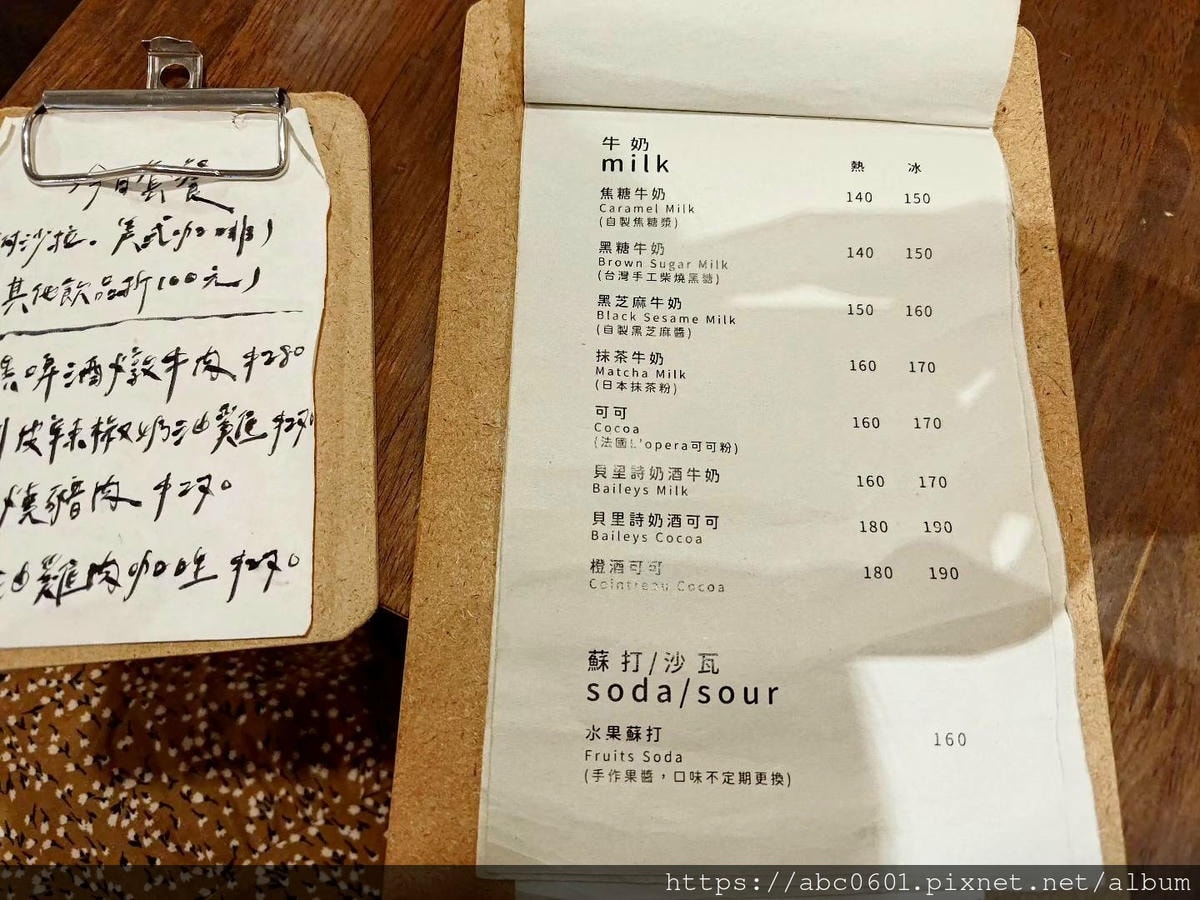 今日套餐
沙拉。美式咖啡)
其他飲品折100元)
黑啤酒燉牛肉 $280
皮辣椒奶油雞 $270
燒豬肉 $270
油雞肉咖哩 $270
牛奶
milk
熱 冰
焦糖牛奶 140 150
Caramel Milk
(自製焦糖漿)
黑糖牛奶 140 150
Brown Sugar Milk
(台灣手工柴燒黑糖)
黑芝麻牛奶 150 160
Black Sesame Milk
(自製黑芝麻醬)
抹茶牛奶 160 170
Matcha Milk
(日本抹茶粉)
可可 160 170
Cocoa
(法國L'opera可可粉)
貝里詩奶酒牛奶 160 170
Baileys Milk
貝里詩奶酒可可 180 190
Baileys Cocoa
橙酒可可 180 190
Cointreau Cocoa
蘇打/沙瓦
soda/sour
水果蘇打 160
Fruits Soda
(手作果醬，口味不定期更換)
https://abc0601.pixnet.net/album